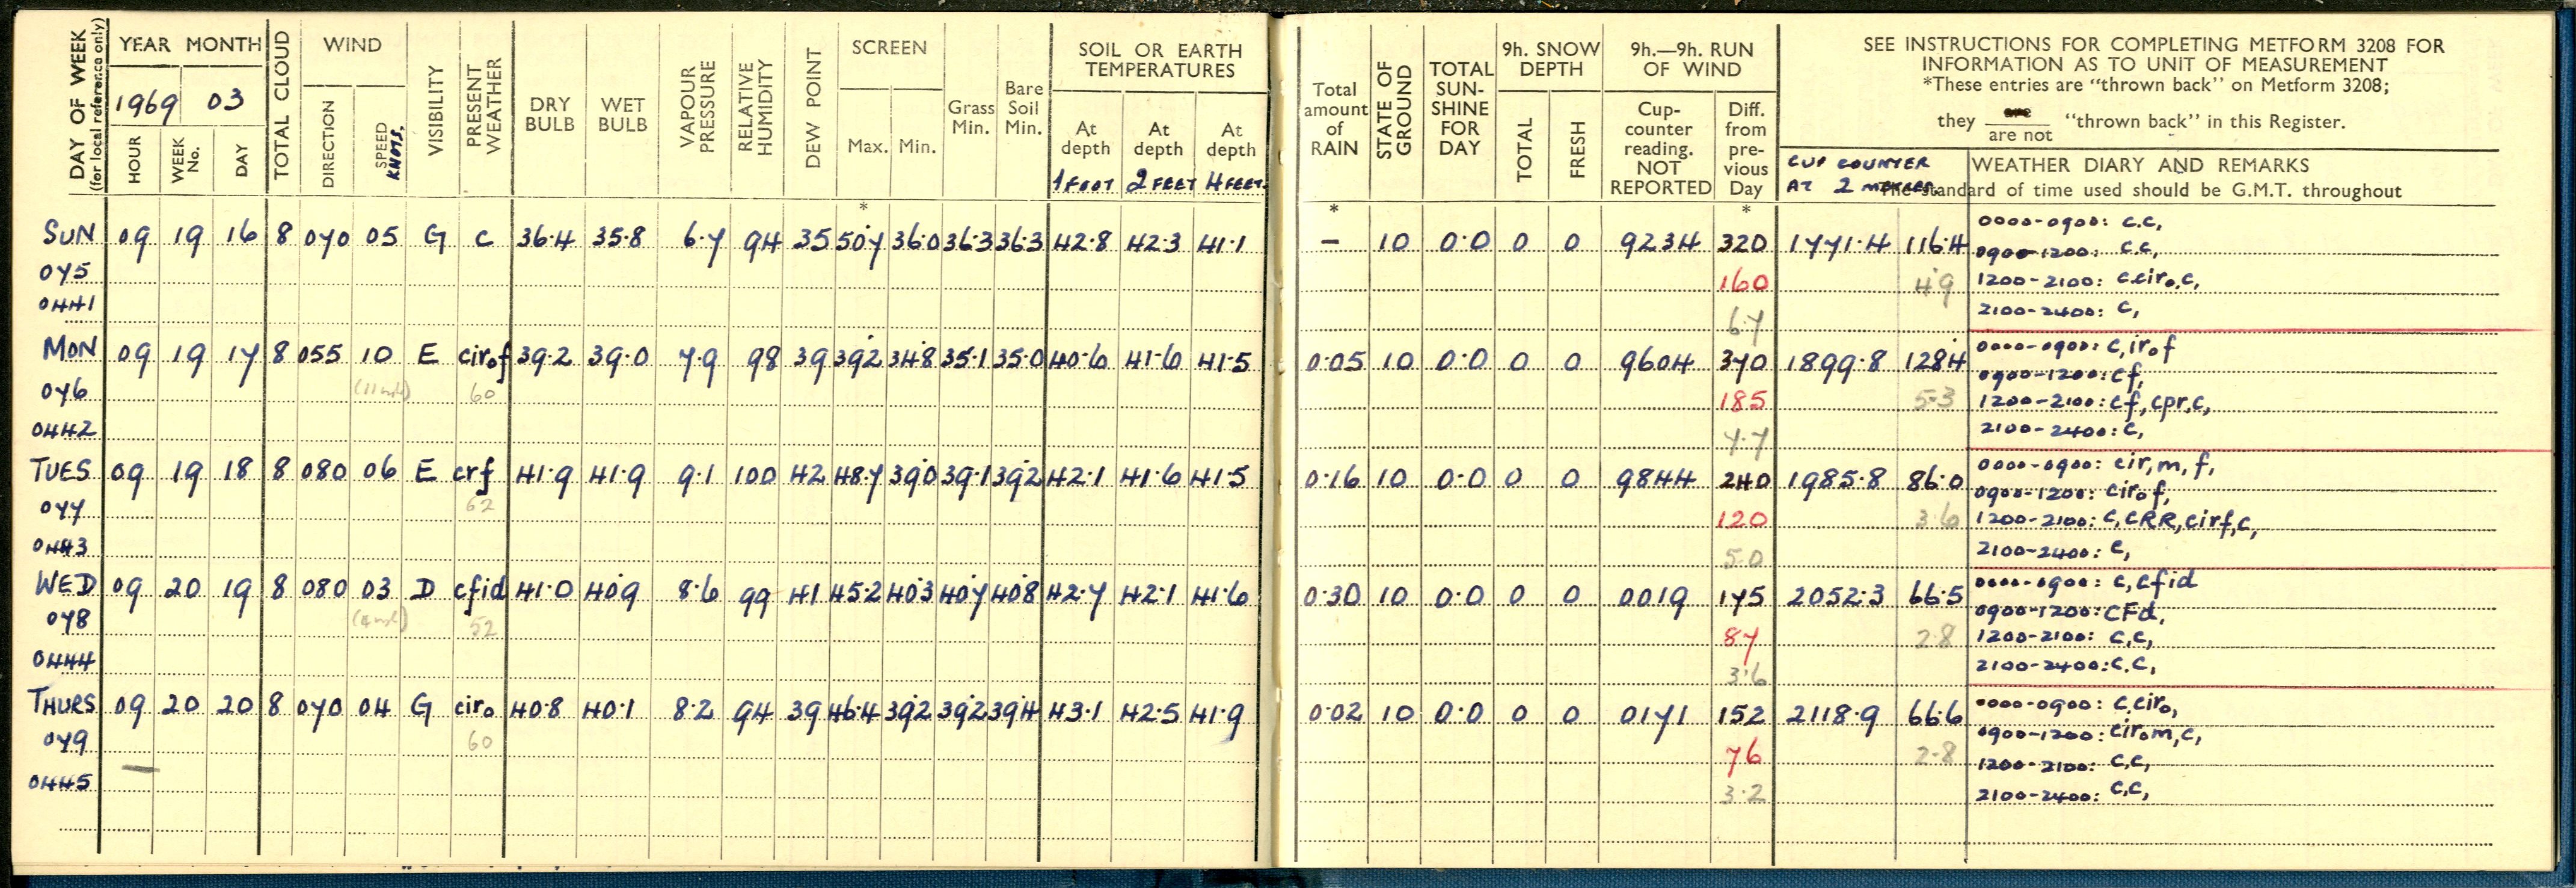 DAY OF WEEK (for local reference only) YEAR MONTH TOTAL CLOUD WIND VISIBILITY PRESENT WEATHER DRY BULB WET BULB VAPOUR PRESSURE RELATIVE HUMIDITY DEW POINT SCREEN Grass Min. Bare Soil Min. SOIL OR EARTH TEMPERATURES
1969 03
HOUR WEEK No. DAY DIRECTION SPEED KNOTS. Max. Min. At depth 1 FOOT At depth 2 FEET At depth 4 FEET.
Total amount of RAIN STATE OF GROUND TOTAL SUN-SHINE FOR DAY 9h. SNOW DEPTH TOTAL FRESH 9h.—9h. RUN OF WIND Cup-counter reading. NOT REPORTED Diff. from pre-vious Day
SEE INSTRUCTIONS FOR COMPLETING METFORM 3208 FOR
INFORMATION AS TO UNIT OF MEASUREMENT
*These entries are "thrown back" on Metform 3208;
they are are not "thrown back" in this Register.
CUP COUNTER AT 2 METRES
WEATHER DIARY AND REMARKS
The standard of time used should be G.M.T. throughout
* * *
SUN 09 19 16 8 070 05 G c 36.4 35.8 6.7 94 35 50.7 36.0 36.3 36.3 42.8 42.3 41.1 – 10 0.0 0 0 9234 320 1771.4 116.4 0000-0900: c.c,
0900-1200: c.c,
075 160 4.9 1200-2100: c.cir₀.c,
0441 6.7 2100-2400: c,
MON 09 19 17 8 055 10 E cir₀f 39.2 39.0 7.9 98 39 39.2 34.8 35.1 35.0 40.6 41.6 41.5 0.05 10 0.0 0 0 9604 370 1899.8 128.4 0000-0900: c,ir₀f
0900-1200: cf,
076 60 185 5.3 1200-2100: cf, cpr,c,
0442 7.7 2100-2400: c,
TUES 09 19 18 8 080 06 E crf 41.9 41.9 9.1 100 42 48.7 39.0 39.1 39.2 42.1 41.6 41.5 0.16 10 0.0 0 0 9844 240 1985.8 86.0 0000-0900: cir,m,f,
0900-1200: cir₀f,
077 62 120 3.6 1200-2100: c,cRR,cirf,c,
0443 5.0 2100-2400: c,
WED 09 20 19 8 080 03 D cfid 41.0 40.9 8.6 99 41 45.2 40.3 40.7 40.8 42.7 42.1 41.6 0.30 10 0.0 0 0 0019 175 2052.3 66.5 0000-0900: c,cfid
0900-1200: cFd,
078 52 87 2.8 1200-2100: c,c,
0444 3.6 2100-2400: c.c,
THURS 09 20 20 8 070 04 G cir₀ 40.8 40.1 8.2 94 39 46.4 39.2 39.2 39.4 43.1 42.5 41.9 0.02 10 0.0 0 0 0171 152 2118.9 66.6 0000-0900: c.cir₀,
0900-1200: cir₀m,c,
079 60 76 2.8 1200-2100: c,c,
0445 3.2 2100-2400: c,c,